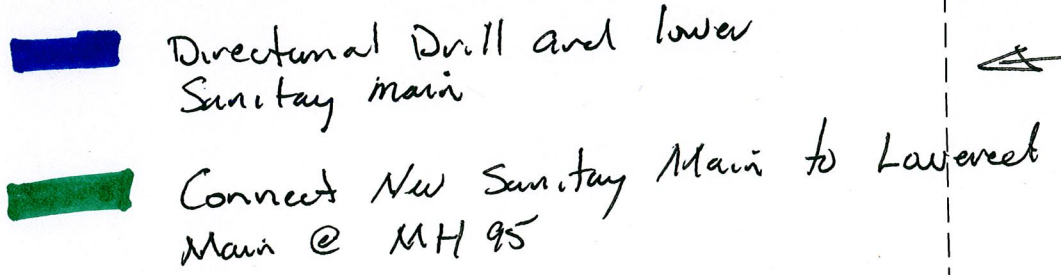 Directional Drill and lower
Sanitary main
Connect New Sanitary Main to Lowered
Main @ MH 95